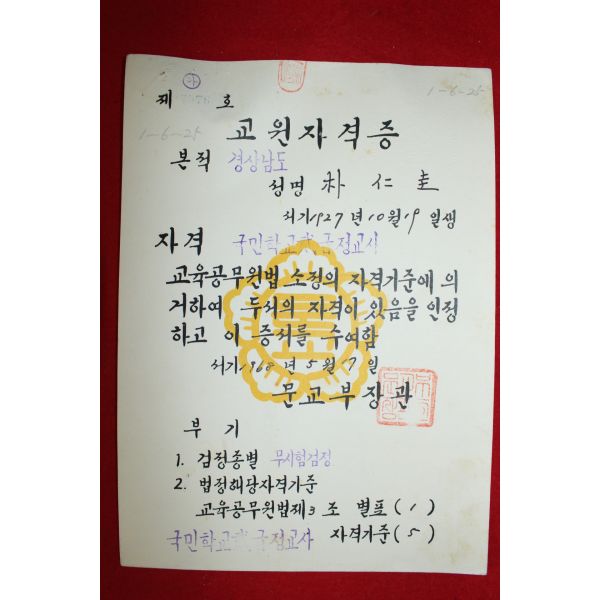 1-6-25
제 호
1-6-25
교원자격증
본적 경상남도
성명 朴仁圭
서기1927년10월19일생
자격 국민학교 정교사
교육공무원법 소정의 자격기준에 의
거하여 두서의 자격이 있음을 인정
하고 이 증서를 수여함
서기1968년5월17일
문교부장관
부기
1. 검정종별 무시험검정
2. 법정해당자격기준
교육공무원법제3조 별표(1)
국민학교 정교사 자격기준(5)